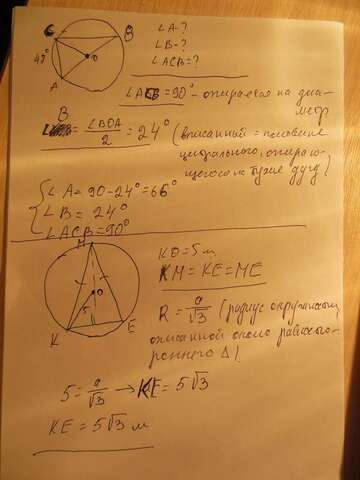 C
B
∠A-?
∠B-?
48°
O
∠ACB=?
A
∠ACB=90° - опирается на диа-
метр
B
= ∠BOA / 2 = 24° (вписанный = половине
центрального, опираю-
щегося на дугу)
∠A = 90-24° = 66°
∠B = 24°
∠ACB=90°
M
KO = 5 м
KM = KE = ME
O
R = a/√3 (радиус окружности,
K
E
описанной около равносто-
роннего Δ)
5 = a/√3 → KE = 5√3
KE = 5√3 м